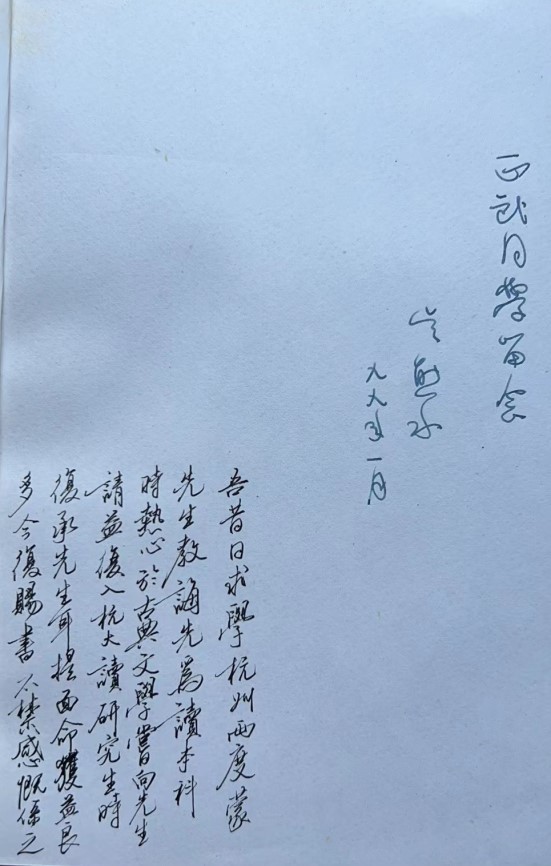 正武同学留念
吴熊和
九八年一月
吾昔日求學杭州兩度蒙
先生教誨先爲讀本科
時熱心於古典文學嘗向先生
請益復入杭大讀研究生時
復承先生耳提面命獲益良
多今復賜書不禁感慨係之